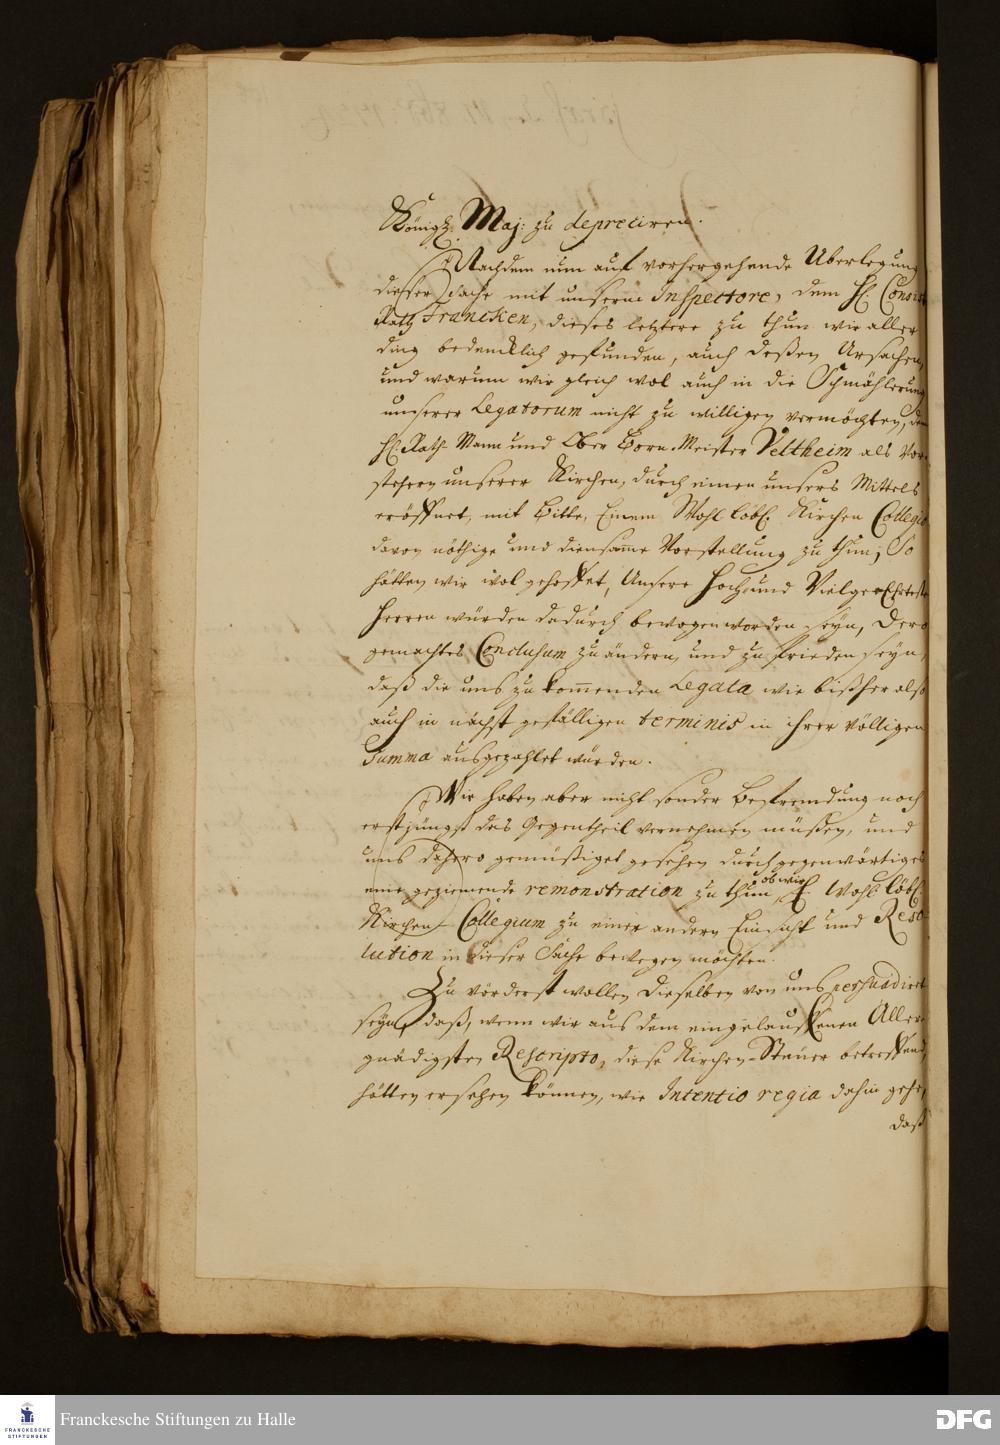 Königl. Maj: zu depreciren.
Nachdem nun auf vorhergehende Uberlegung
dieser Sache mit unserm Inspectore, dem H. Consist.
Rath Francken, dieses letztere zu thun wir aller
ding bedencklich gefunden, auch deßen Ursachen,
und warum wir gleich wol auch in die Schmählerung
unserer Legatorum nicht zu willigen vermöchten, dem
H. Rath-Mann und Ober Born-Meister Veltheim als Vor-
stehern unserer Kirchen, durch einen unsers Mittels
eröffnet, mit Bitte, Einem Wohl löbl. Kirchen Collegio
davon nöthige und diensame Vorstellung zu thun; So
hätten wir wol gehoffet, Unsere Hoch und Vielgeehrteste
Herren würden dadurch bewogen worden seyn, Dero
gemachtes Conclusum zu ändern, und zu frieden seyn,
daß die uns zu kommenden Legata wie bißher also
auch in nächst gefälligen terminis in ihrer völligen
Summa ausgezahlet würden.
Wir haben aber nicht sonder Befremdung noch
erst jüngst das Gegentheil vernehmen müßen, und
uns dahero gemüßiget gesehen durch gegenwärtiges
eine geziemende remonstration zu thun, ob wir E. Wohl löbl.
Kirchen-Collegium zu einer andern Einsicht und Reso-
lution in dieser Sache bewegen möchten.
Zu vörderst wollen Dieselben von uns persuadiret
seyn, daß, wenn wir aus dem eingelauffenen Aller-
gnädigsten Rescripto, diese Kirchen-Steuer betreffend,
hätten ersehen können, wie Intentio regia dahin gehe,
daß
Franckesche Stiftungen zu Halle
FRANCKESCHE
STIFTUNGEN
DFG